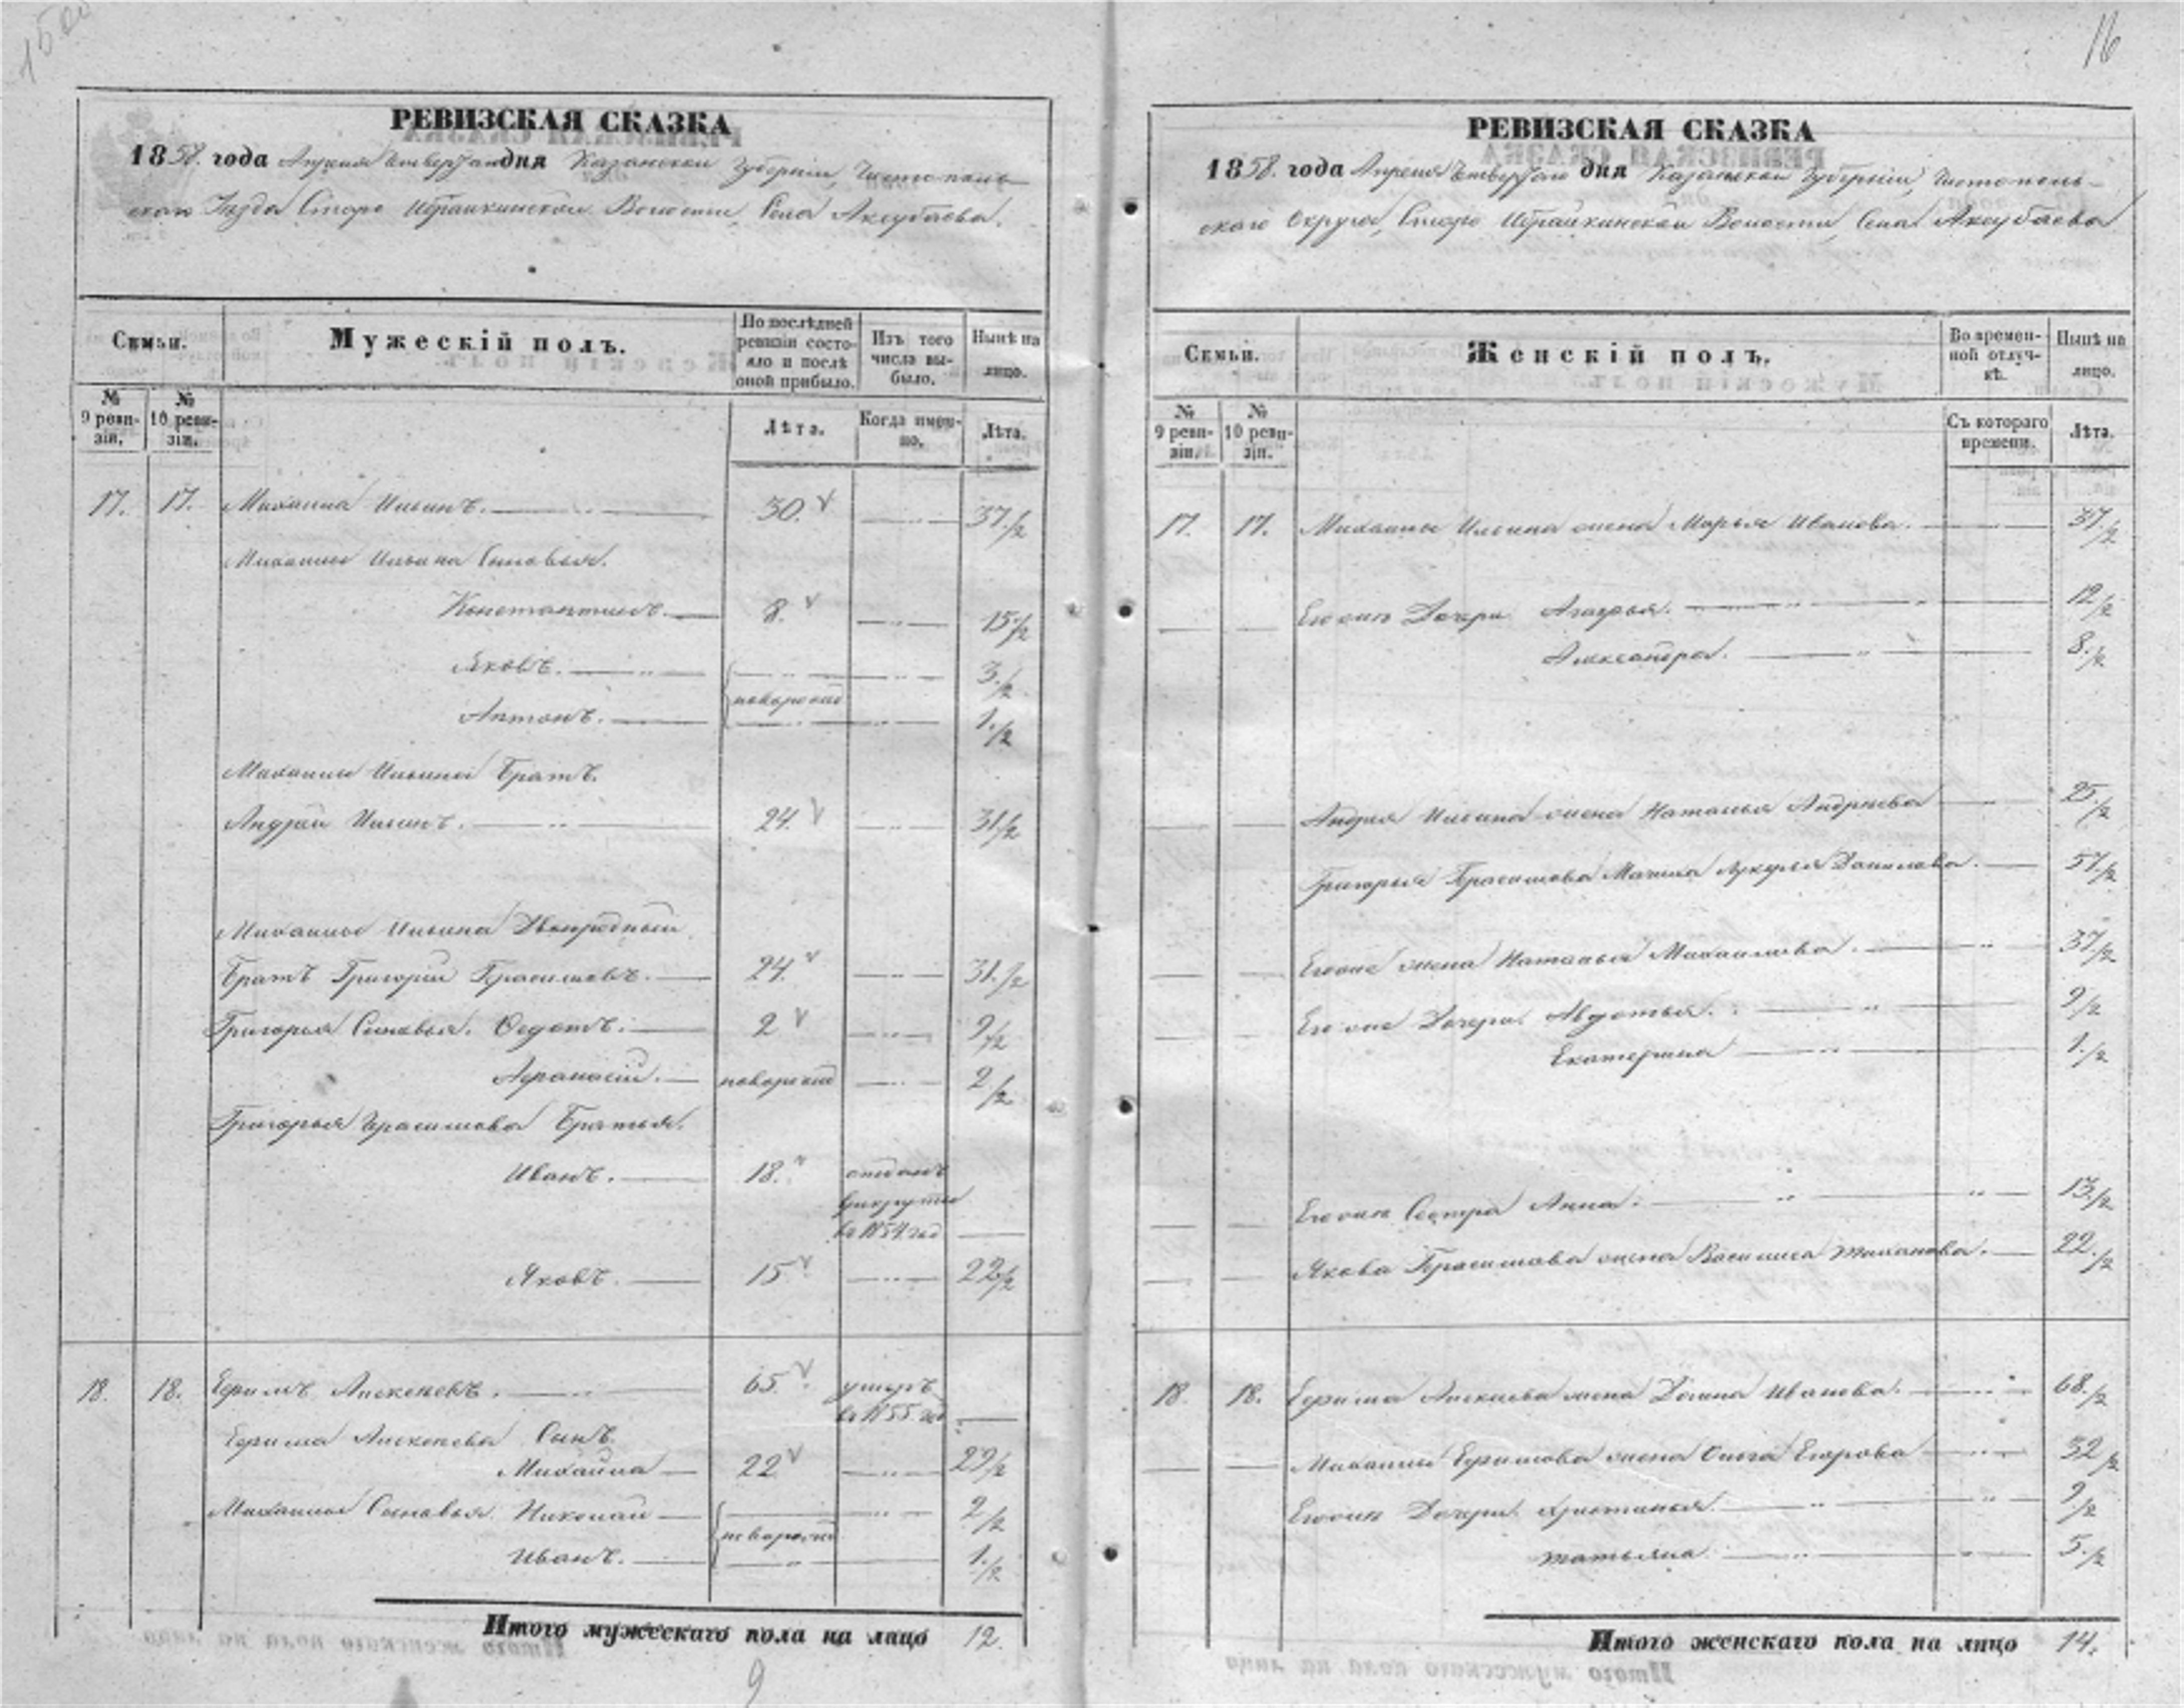 16
РЕВИЗСКАЯ СКАЗКА
1858. года Апреля Четвертаго дня Казанской Губернiи, Чистополь-
скаго Уезда Старо Ибрайкинской Волости, Села Аксубаева.
Семьи.
Мужескій полъ.
По послѣдней ревизіи состояло и послѣ оной прибыло.
Изъ того числа выбыло.
Нынѣ на лицо.
№ 9 ревизіи.
№ 10 ревизіи.
Лѣта.
Когда именно.
Лѣта.
17. 17. Михаила Ильинъ. 30. 37 1/2
Михаилы Ильина Сыновья.
Константинъ. 8. 15 1/2
Яковъ. 3. 1/2
новорожд
Антонъ. 1. 1/2
Михаилы Ильина Братъ.
Андрей Ильинъ. 24. 31 1/2
Михаилы Ильина Двоюродный
Братъ Григорій Герасимовъ. 24. 31. 1/2
Григорья Сыновья. Федотъ. 2 9 1/2
Афанасій. новорожд 2 1/2
Григорья Герасимова Братья.
Иванъ. 18. отданъ
в рекруты
въ 1854 год
Яковъ. 15. 22 1/2
18. 18. Ефимъ Алексеевъ. 65. умеръ
въ 1855 год
Ефима Алексеева Сынъ.
Михайла 22 29 1/2
Михаилы Сыновья Николай 2 1/2
новорожд
Иванъ. 1. 1/2
Итого мужескаго пола на лицо 12.
9
РЕВИЗСКАЯ СКАЗКА
1858. года Апреля Четвертаго дня Казанской Губерніи, Чистополь-
скаго Округа, Старо Ибрайкинской Волости, Села Аксубаева
Семьи.
Женскій полъ.
Во временной отлучкѣ.
Нынѣ на лицо.
№ 9 ревизіи.
№ 10 ревизіи.
Съ котораго времени.
Лѣта.
17. 17. Михаилы Ильина жена Марья Иванова. 37. 1/2
Его Дочери Агафья. 12. 1/2
Александра. 8. 1/2
Андрея Ильина жена Наталья Андреева 25. 1/2
Григорья Герасимова Мачиха Лукерья Данилова. 57. 1/2
Его жена Наталья Михайлова. 37. 1/2
Его Дочери Авдотья. 9 1/2
Екатерина 1. 1/2
Его Сестра Анна. 13. 1/2
Якова Герасимова жена Василиса 22. 1/2
18 18. Ефима Алексеева жена Домна Иванова. 68. 1/2
Михаилы Ефимова жена Ольга Егорова 32 1/2
Его Дочери Христинья. 9 1/2
Татьяна 5. 1/2
Итого женскаго пола на лицо 14.